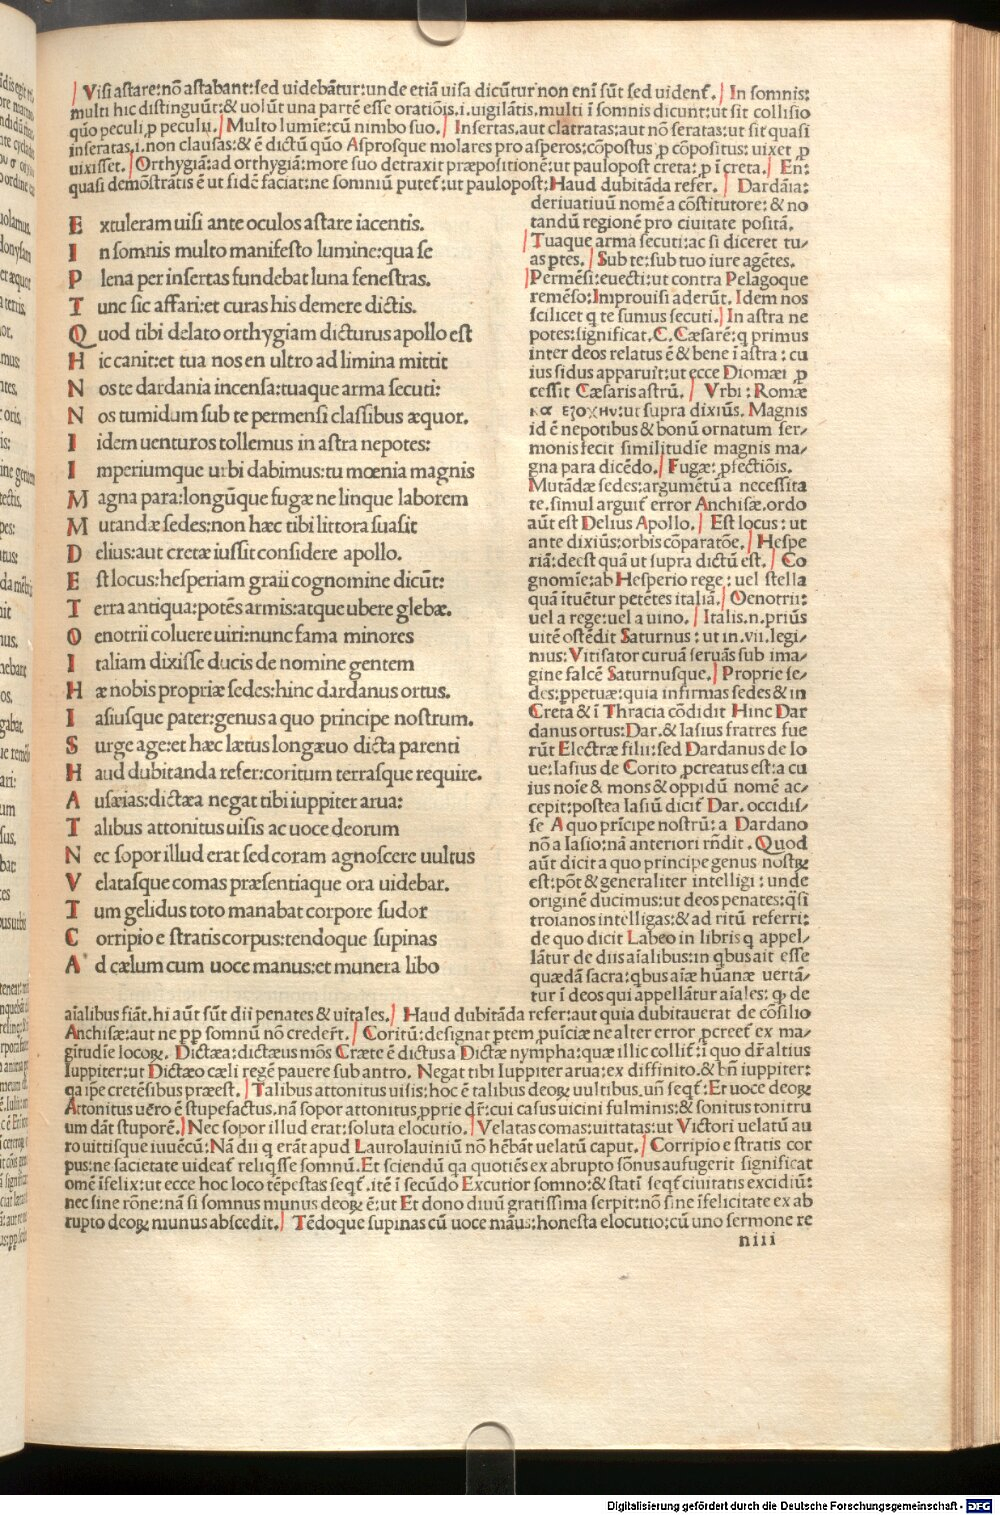 Visi astare:nō astabant:sed uidebātur:unde etiā uisa dicūtur non enī sūt sed uident᷑. In somnis:
multi hic distinguūt:& uolūt una partē esse oratiōis.i.uigilātis.multi ī somnis dicunt:ut sit collisio
quō peculi ꝓ peculiu. Multo lumīe:cū nimbo suo. Insertas.aut clatratas:aut nō seratas:ut sit quasi
inseratas.i.non clausas:& ē dictū quō Asprosque molares pro asperos:cōpostus ꝓ cōpositus: uixet ꝓ
uixisset. Orthygiā:ad orthygiā:more suo detraxit præpositionē:ut paulopost creta: ꝓ ī creta. En:
quasi demōstrātis ē ut fidē faciat:ne somniū putet᷑:ut paulopost:Haud dubitāda refer. Dardāia:
E xtuleram uisi ante oculos astare iacentis.
I n somnis multo manifesto lumine:qua se
P lena per insertas fundebat luna fenestras.
T unc sic affari:et curas his demere dictis.
Q uod tibi delato orthygiam dicturus apollo est
H ic canit:et tua nos en ultro ad limina mittit
N os te dardania incensa:tuaque arma secuti:
N os tumidum sub te permensi classibus æquor.
I idem uenturos tollemus in astra nepotes:
I mperiumque urbi dabimus:tu mœnia magnis
M agna para:longūque fugæ ne linque laborem
M utandæ sedes:non hæc tibi littora suasit
D elius:aut cretæ iussit considere apollo.
E st locus:hesperiam graii cognomine dicūt:
T erra antiqua:potēs armis:atque ubere glebæ.
O enotrii coluere uiri:nunc fama minores
I taliam dixisse ducis de nomine gentem
H æ nobis propriæ sedes:hinc dardanus ortus.
I asiusque pater:genus a quo principe nostrum.
S urge age:et hæc lætus longæuo dicta parenti
H aud dubitanda refer:coritum terrasque require.
A usæias:dictæa negat tibi iuppiter arua:
T alibus attonitus uisis ac uoce deorum
N ec sopor illud erat sed coram agnoscere uultus
V elatasque comas præsentiaque ora uidebar.
T um gelidus toto manabat corpore sudor
C orripio e stratis corpus:tendoque supinas
A d cælum cum uoce manus:et munera libo
deriuatiuū nomē a cōstitutore: & no
tandū regionē pro ciuitate positā.
Tuaque arma secuti:ac si diceret tu/
as ptes. Sub te:sub tuo iure agētes.
Permēsi:euecti:ut contra Pelagoque
remēso:Improuisi aderūt. Idem nos
scilicet q te sumus secuti. In astra ne
potes:significat.C.Cæsarē:q primus
inter deos relatus ē & bene ī astra: cu
ius sidus apparuit:ut ecce Diomæi ꝓ
cessit Cæsaris astrū. Vrbi:Romæ
κα εξοχην:ut supra dixiūs. Magnis
id ē nepotibus & bonū ornatum ser/
monis fecit similitudīe magnis ma/
gna para dicēdo. Fugæ: ꝓfectiōis.
Mutādæ sedes:argumētū a necessita
te.simul arguit᷑ error Anchisæ.ordo
aūt est Delius Apollo. Est locus: ut
ante dixiūs:orbis cōparatōe. Hespe
riā:deest quā ut supra dictū est. Co
gnomīe:ab Hesperio rege: uel stella
quā ītuētur petētes italiā. Oenotrii:
uel a rege:uel a uino. Italis.n.prius
uitē ostēdit Saturnus: ut in.vii.legi/
mus:Vitisator curuā seruās sub ima/
gine falcē Saturnusque. Proprie se/
des:ppetuæ:quia infirmas sedes & in
Creta & ī Thracia cōdidit Hinc Dar
danus ortus:Dar.& Iasius fratres fue
rūt Electræ filii:sed Dardanus de Io
ue:Iasius de Corito ꝓcreatus est:a cu
ius noīe & mons & oppidū nomē ac/
cepit:postea Iasiū dicit᷑ Dar. occidis/
se A quo prīcipe nostrū: a Dardano
nō a Iasio:nā anteriori rñdit. Quod
aūt dicit a quo principe genus nostꝝ
est:pōt & generaliter intelligi: unde
originē ducimus:ut deos penates:q̄si
troianos intelligas:& ad ritū referri:
de quo dicit Labeo in libris q appel/
lātur de diis aīalibus:in qbus ait esse
quædā sacra:qbus aīæ hūanæ uertā/
tur ī deos qui appellātur aīales: qꝫ de
aīalibus fiāt.hi aūt sūt dii penates & uitales. Haud dubitāda refer:aut quia dubitauerat de cōsilio
Anchisæ:aut ne pp somnū nō credert᷑. Coritū:designat ptem puīciæ ne alter error ꝓcreet᷑ ex ma/
gītudīe locoꝝ. Dictæa:dictæus mōs Cræte ē dictus a Dictæ nympha:quæ illic collit᷑:ī quo dr̄ altius
Iuppiter:ut Dictæo cæli regē pauere sub antro. Negat tibi Iuppiter arua:ex diffinito.& bñ iuppiter:
qa īpe cretēsibus præest. Talibus attonitus uisis:hoc ē talibus deoꝝ uultibus.uñ seqt᷑:Et uoce deoꝝ
Attonitus uero ē stupefactus.nā sopor attonitus pprie dr̄:cui casus uicini fulminis:& sonitus tonitru
um dāt stuporē. Nec sopor illud erat:soluta elocutio. Velatas comas:uittatas:ut Victori uelatū au
ro uittisque iuuēcū:Nā dii q erāt apud Laurolauiniū nō hēbāt uelatū caput. Corripio e stratis cor
pus:ne facietate uideat᷑ reliqsse somnū. Et sciendū qa quotiēs ex abrupto sōnus aufugerit significat
omē īfelix:ut ecce hoc loco tēpestas seqt᷑.itē ī secūdo Excutior somno:& statī seqt᷑ ciuitatis excidiū:
nec sine rōne:nā si somnus munus deoꝝ ē:ut Et dono diuū gratissima serpit:nō sine īfelicitate ex ab
rupto deoꝝ munus abscedit. Tēdoque supinas cū uoce māus:honesta elocutio:cū uno sermone re
niii
Digitalisierung gefördert durch die Deutsche Forschungsgemeinschaft - DFG